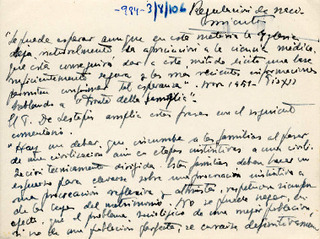 -984-3/8/106 Regulación de naci-
mientos
"Se puede esperar aunque en esta materia la Iglesia
deja naturalmente la apreciación a la ciencia médica,
que ésta conseguirá dar a este método lícito una base
suficientemente segura y las mas recientes informaciones
permiten confirmar tal esperanza". Nov 1951. Pio XII
hablando a "Frente de la familia"
El P. amplia estas frases con el siguiente
comentario:
"Hay un deber que incumbe a las familias al pasar
de una civilización aun en etapas instintivas a una civili-
zación tecnicamente dirigida. Estas familias deben hacer un
esfuerzo para elevarse sobre una procreación instintiva a
una procreación reflexiva y altruista, respetuosa siempre
de las leyes del matrimonio. No se puede negar en
efecto, que el problema de una mejor población,
si no de una población perfecta, se